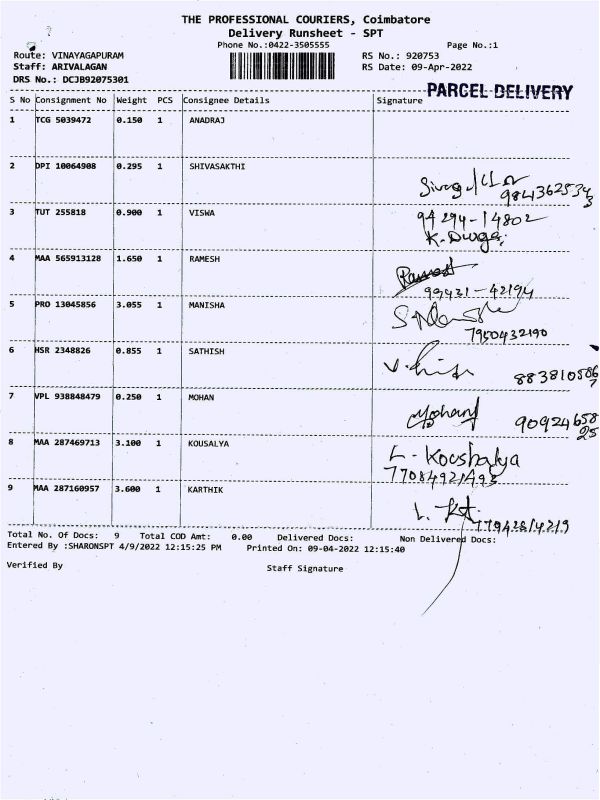 THE PROFESSIONAL COURIERS, Coimbatore
Delivery Runsheet - SPT
Phone No.:0422-3505555 Page No.:1
Route: VINAYAGAPURAM RS No.: 920753
Staff: ARIVALAGAN RS Date: 09-Apr-2022
DRS No.: DCJB92075301
PARCEL DELIVERY
S No Consignment No Weight PCS Consignee Details Signature
1 TCG 5039472 0.150 1 ANADRAJ
2 DPI 10064908 0.295 1 SHIVASAKTHI
9843625343
3 TUT 255818 0.900 1 VISWA 94294-14802
K. Durga
4 MAA 565913128 1.650 1 RAMESH Ramesh
99431-42194
5 PRO 13045856 3.055 1 MANISHA
7950432190
6 HSR 2348826 0.855 1 SATHISH
8838105867
7 VPL 938848479 0.250 1 MOHAN Mohan
9092465825
8 MAA 287469713 3.100 1 KOUSALYA L. Koushalya
7708492149
9 MAA 287160957 3.600 1 KARTHIK
Total No. Of Docs: 9 Total COD Amt: 0.00 Delivered Docs: Non Delivered Docs:
Entered By :SHARONSPT 4/9/2022 12:15:25 PM Printed On: 09-04-2022 12:15:40
Verified By Staff Signature